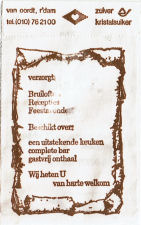 van oordt, r'dam
zuiver
tel. (010) 76 21 00
kristalsuiker
verzorgt:
Bruiloften
Recepties
Feestavonden
Beschikt over:
een uitstekende keuken
complete bar
gastvrij onthaal
Wij heten U
van harte welkom